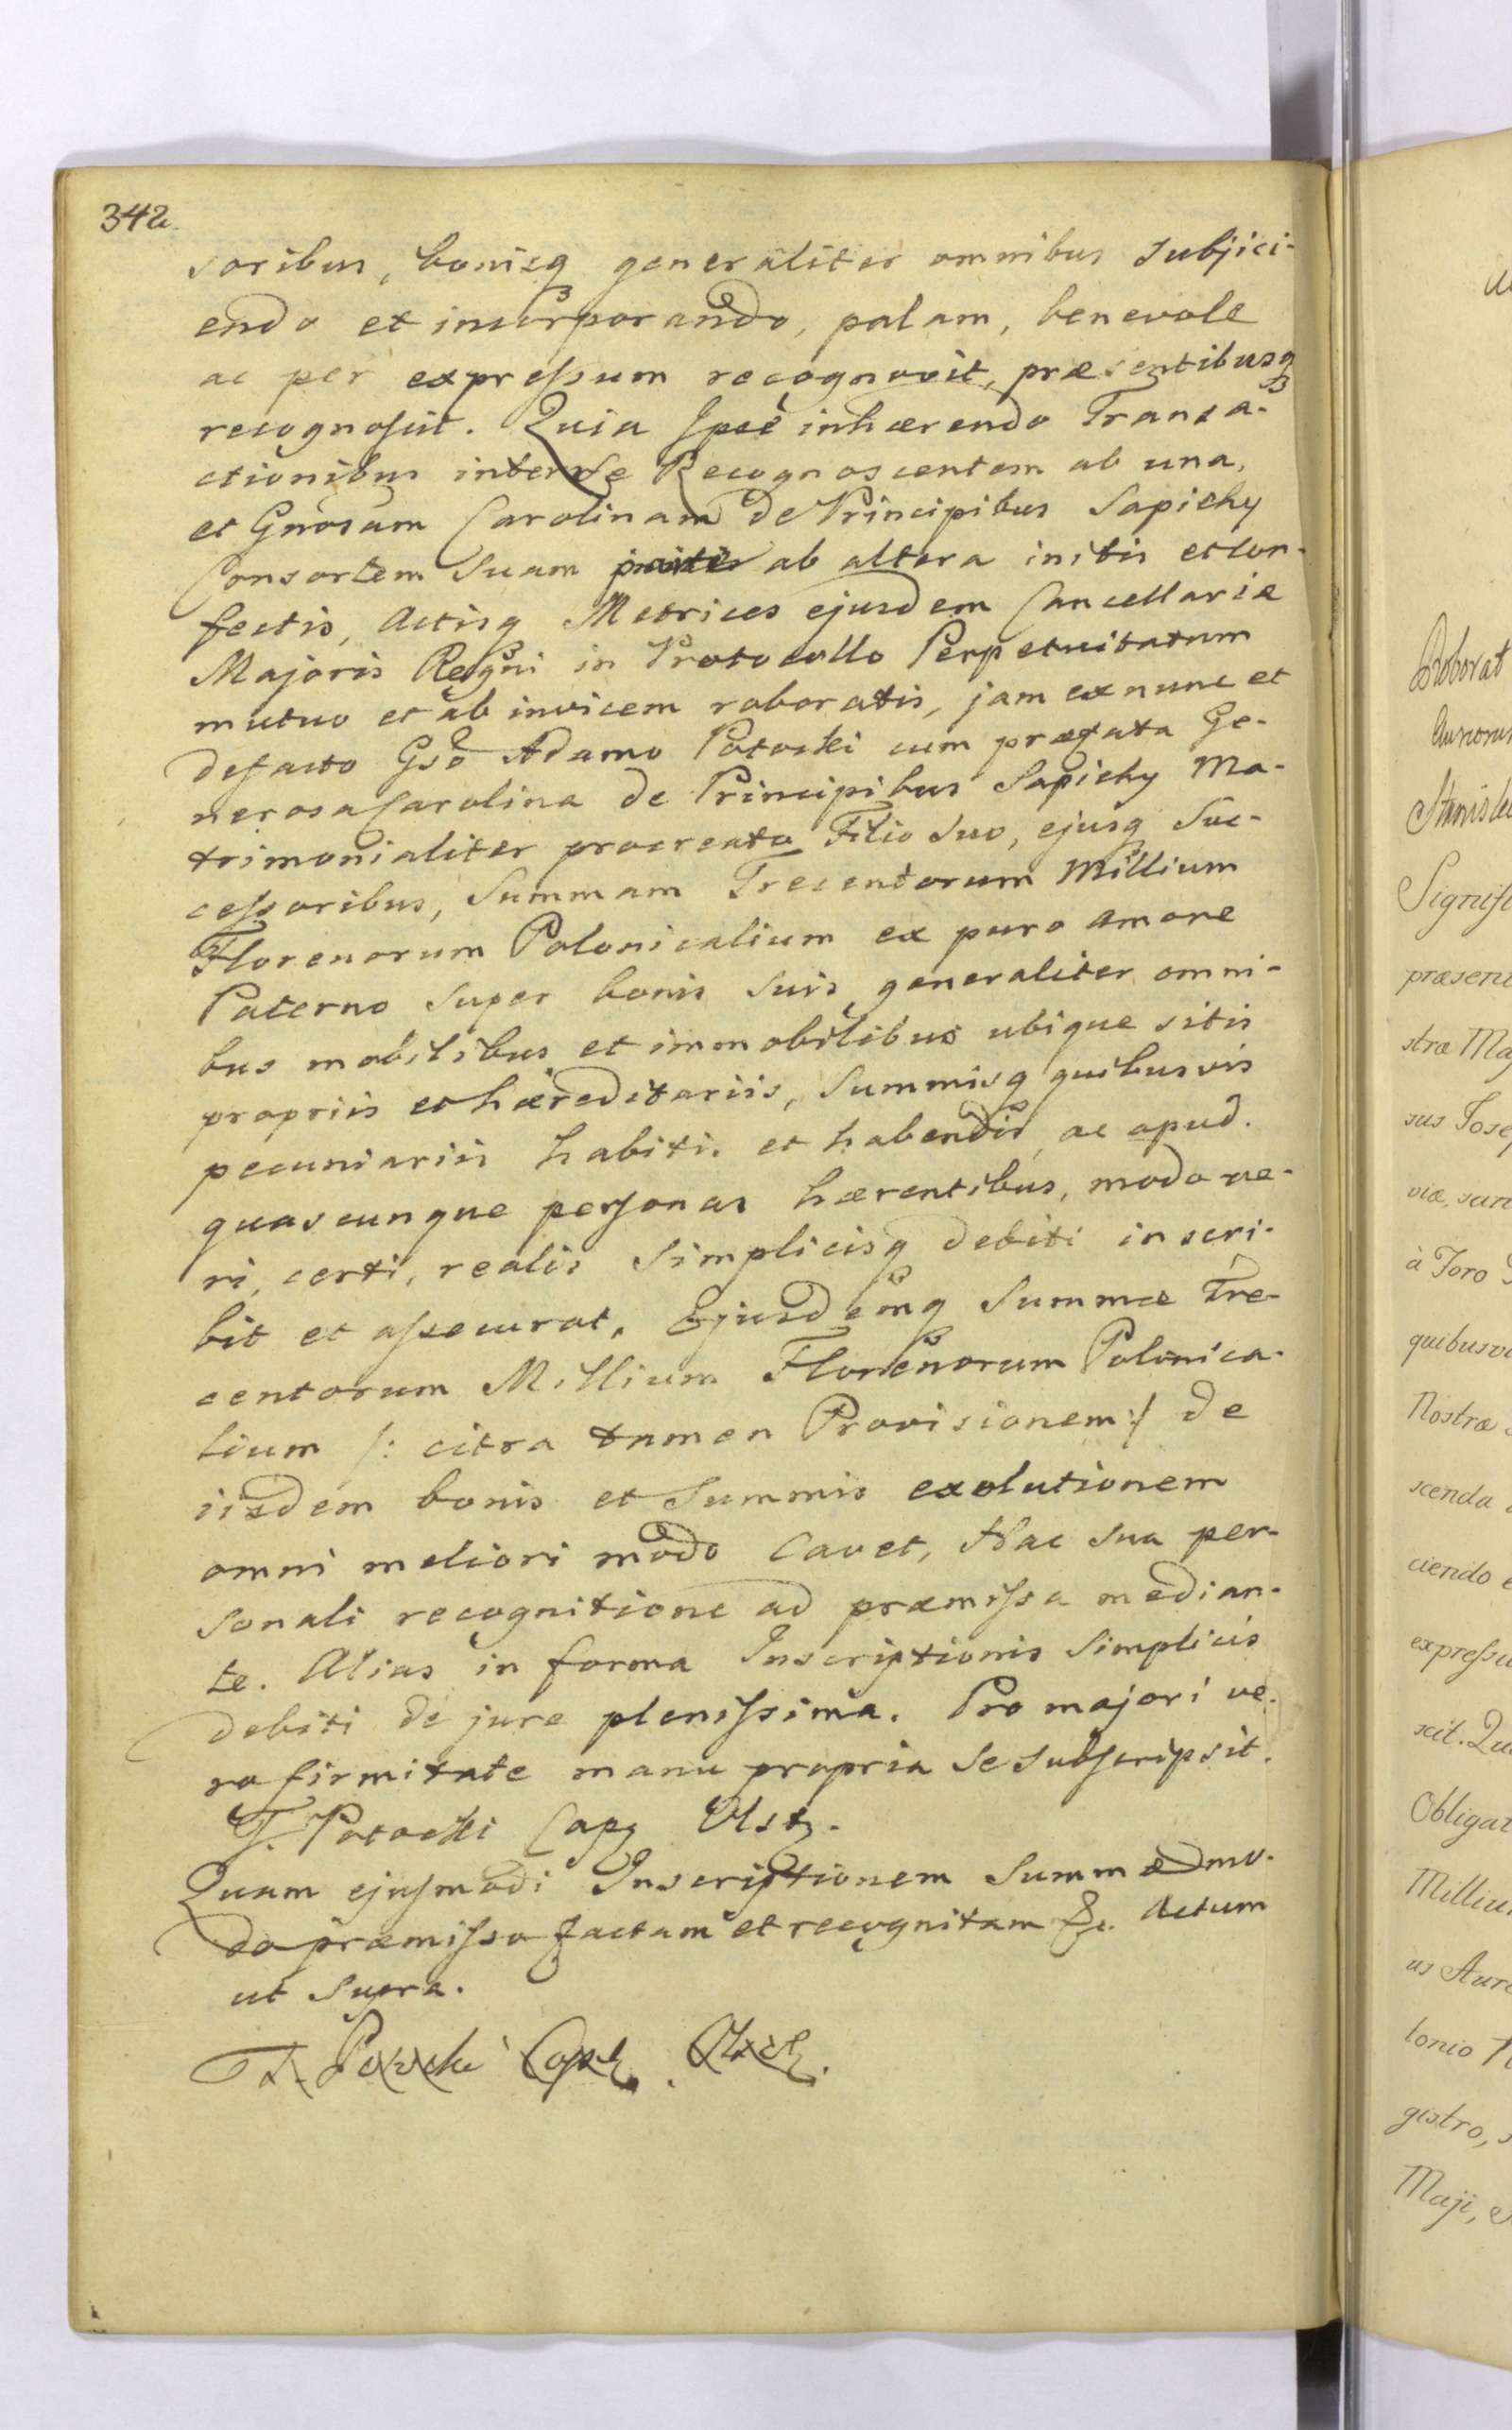 342.
soribus, bonisq generaliter omnibus subjici-
endo et incorporando, palam, benevole
ac per expressum recognovit, præsentibusq
recognoscit. Quia Ipse inhærendo Transa-
ctionibus inter se Recognoscentem ab una,
et Gnosam Carolinam de Principibus Sapiehy
Consortem Suam ab altera initis et con-
fectis, Actisq Metrices ejusdem Cancellariæ
Majoris Regni in Protocollo Perpetuitatum
mutuo et ab invicem roboratis, jam ex nunc et
defacto Gso Adamo Potocki cum præfata Ge-
nerosa Carolina de Principibus Sapiehy Ma-
trimonialiter procreato Filio Suo, ejusq Suc-
cessoribus, Summam Trecentorum Millium
Florenorum Polonicalium ex puro amore
Paterno super bonis suis generaliter omni-
bus mobilibus et immobilibus ubique sitis
propriis et hæreditariis, Summisq quibusvis
pecuniariis habitis et habendis, ac apud.
quascunque personas hærentibus, modo ve-
ri, certi, realis Simplicisq debiti inscri-
bit et assecurat, Ejusdemq Summæ Tre-
centorum Millium Florenorum Polonica-
lium /: citra tamen Provisionem :/ de
iisdem bonis et Summis exolutionem
omni meliori modo Cavet, Hac sua per-
sonali recognitione ad præmissa median-
te. Alias in forma Inscriptionis Simplicis
debiti de jure plenissima. Pro majori ve-
ro firmitate manu propria se subscripsit.
T. Potocki Cap Olsz.
Quam ejusmodi Inscriptionem Summæ mo-
do præmisso factam et recognitam &c. Actum
ut Supra.
Roborat
Stanisla
Signifi
præsent
stræ Ma
sus Jose
viæ, san
à Foro
quibusvi
Nostræ
scenda
ciendo e
expressu
scit. Qu
Obligat
Milliu
us Aure
lonio
gistro, s
Maji,